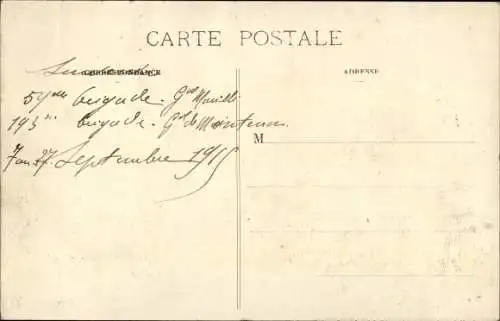 CARTE POSTALE
CORRESPONDANCE
ADRESSE
59me brigade. Gal
193me brigade. Gal de
M
7 au 27 Septembre 1915